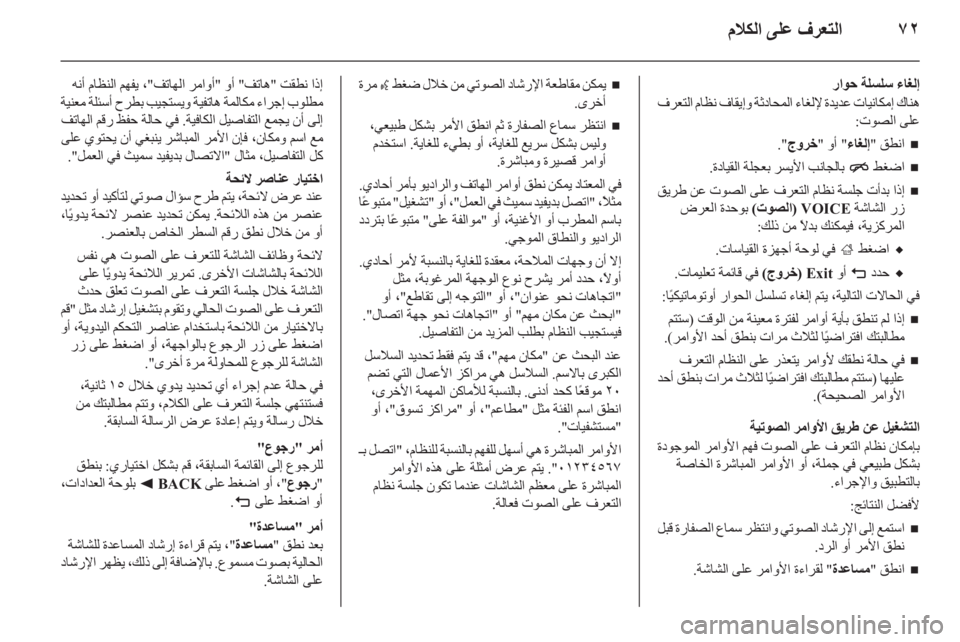 ٧٢
التعرف على الكلام
إلغاء سلسلة حوار
هناك إمكانيات عديدة لإلغاء المحادثة وإيقاف نظام التعرف
على الصوت:
■ انطق "إلغاء" أو "خروج".
■ اضغط n بالجانب الأيسر بعجلة القيادة.
■ إذا بدأت جلسة نظام التعرف على الصوت عن طريق
رز الشاشة VOICE (الصوت) بوحدة العرض
المركزية، فيمكنك بدلاً من ذلك:
اضغط ; في لوحة أجهزة القياسات.
حدد q أو Exit (خروج) في قائمة التعليمات.
في الحالات التالية، يتم إلغاء تسلسل الحوار أوتوماتيكيًا:
■ إذا لم تنطق بأية أوامر لفترة معينة من الوقت (ستتم
مطالبتك افتراضيًا لثلاث مرات بنطق أحد الأوامر).
■ في حالة نطقك لأوامر يتعذر على نظام التعرف
عليها (ستتم مطالبتك افتراضيًا لثلاث مرات بنطق أحد
الأوامر الصحيحة).
التشغيل عن طريق الأوامر الصوتية
بإمكان نظام التعرف على الصوت فهم الأوامر الموجودة
بشكل طبيعي في جملة، أو الأوامر المباشرة الخاصة
بالتطبيق والإجراء.
لأفضل النتائج:
■ استمع إلى الإرشاد الصوتي وانتظر سماع الصفارة قبل
نطق الأمر أو الرد.
■ انطق "مساعدة" لقراءة الأوامر على الشاشة.
■ يمكن مقاطعة الإرشاد الصوتي من خلال ضغط w مرة
أخرى.
■ انتظر سماع الصفارة ثم انطق الأمر بشكل طبيعي،
وليس بشكل سريع للغاية، أو بطيء للغاية. استخدم
أوامر قصيرة ومباشرة.
في المعتاد يمكن نطق أوامر الهاتف والراديو بأمر أحادي.
مثلاً، "اتصل بديفيد سميث في العمل"، أو "تشغيل" متبوعًا
باسم المطرب أو الأغنية، أو "موالفة على" متبوعًا بتردد
الراديو والنطاق الموجي.
إلا أن وجهات الملاحة، معقدة للغاية بالنسبة لأمر أحادي.
أولاً، حدد أمر يشرح نوع الوجهة المرغوبة، مثل
"اتجاهات نحو عنوان"، أو "التوجه إلى تقاطع"، أو
"ابحث عن مكان مهم" أو "اتجاهات نحو جهة اتصال".
فيستجيب النظام بطلب المزيد من التفاصيل.
عند البحث عن "مكان مهم"، قد يتم فقط تحديد السلاسل
الكبرى بالاسم. السلاسل هي مراكز الأعمال التي تضم
٢٠ موقعًا كحد أدنى. بالنسبة للأماكن المهمة الأخرى،
انطق اسم الفئة مثل "مطاعم"، أو "مراكز تسوق"، أو
"مستشفيات".
الأوامر المباشرة هي أسهل للفهم بالنسبة للنظام، "اتصل بـ
٠١٢٣٤٥٦٧". يتم عرض أمثلة على هذه الأوامر
المباشرة على معظم الشاشات عندما تكون جلسة نظام
التعرف على الصوت فعالة.
إذا نطقت "هاتف" أو "أوامر الهاتف"، يفهم النظام أنه
مطلوب إجراء مكالمة هاتفية ويستجيب بطرح أسئلة معينة
إلى أن يجمع التفاصيل الكافية. في حالة حفظ رقم الهاتف
مع اسم ومكان، فإن الأمر المباشر ينبغي أن يحتوي على
كل التفاصيل، مثال "الاتصال بديفيد سميث في العمل".
اختيار عناصر لائحة
عند عرض لائحة، يتم طرح سؤال صوتي لتأكيد أو تحديد
عنصر من هذه اللائحة. يمكن تحديد عنصر لائحة يدويًا،
أو من خلال نطق رقم السطر الخاص بالعنصر.
لائحة وظائف الشاشة للتعرف على الصوت هي نفس
اللائحة بالشاشات الأخرى. تمرير اللائحة يدويًا على
الشاشة خلال جلسة التعرف على الصوت تعلق حدث
التعرف على الصوت الحالي وتقوم بتشغيل إرشاد مثل "قم
بالاختيار من اللائحة باستخدام عناصر التحكم اليدوية، أو
اضغط على رز الرجوع بالواجهة، أو اضغط على رز
الشاشة للرجوع للمحاولة مرة أخرى".
في حالة عدم إجراء أي تحديد يدوي خلال ١٥ ثانية،
فستنتهي جلسة التعرف على الكلام، وتتم مطالبتك من
خلال رسالة ويتم إعادة عرض الرسالة السابقة.
أمر "رجوع"
للرجوع إلى القائمة السابقة، قم بشكل اختياري: بنطق
"رجوع"، أو اضغط على k BACK بلوحة العدادات،
أو اضغط على q.
أمر "مساعدة"
بعد نطق "مساعدة"، يتم قراءة إرشاد المساعدة للشاشة
الحالية بصوت مسموع. بالإضافة إلى ذلك، يظهر الإرشاد
على الشاشة.